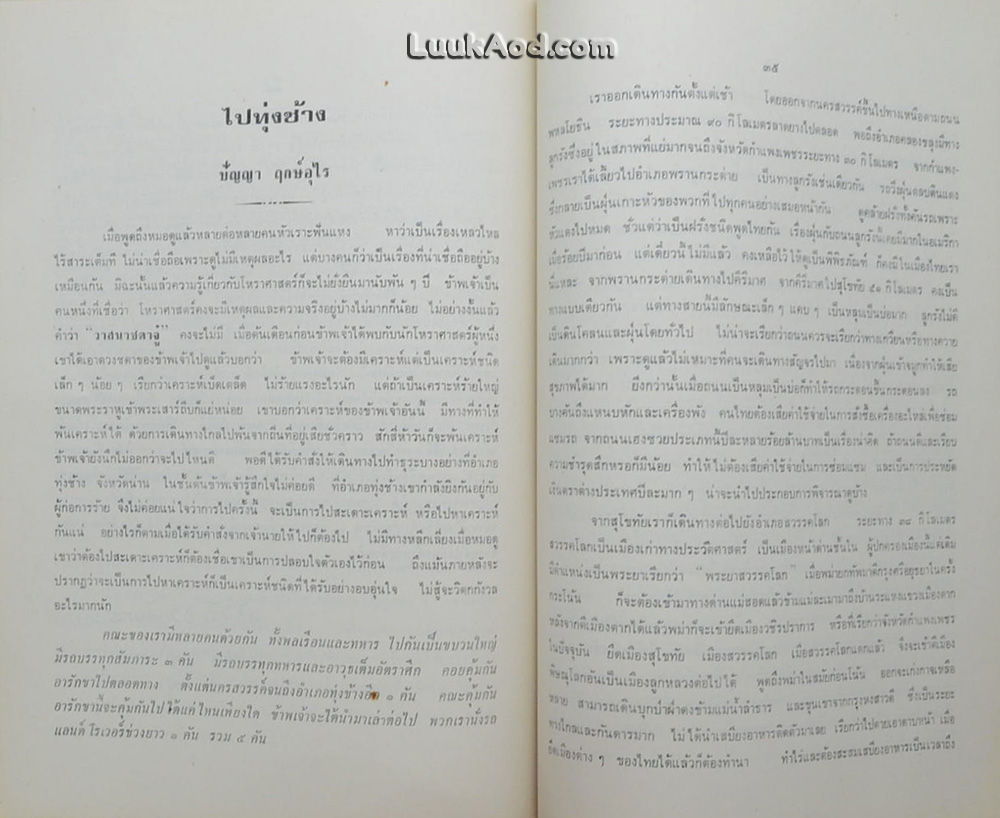 LuukAod.com
ไปทุ่งช้าง
ปัญญา ฤกษ์อุไร
เมื่อพูดถึงหมอดูแล้วหลายต่อหลายคนหัวเราะพึ่นแหง หาว่าเป็นเรื่องเหลวไหล
ไร้สาระเต็มที ไม่น่าเชื่อถือเพราะดูไม่มีเหตุผลอะไร แต่บางคนก็ว่าเป็นเรื่องที่น่าเชื่อถืออยู่บ้าง
เหมือนกัน มิฉะนั้นแล้วความรู้เกี่ยวกับโหราศาสตร์ก็จะไม่ยั่งยืนมานับพัน ๆ ปี ข้าพเจ้าเป็น
คนหนึ่งที่เชื่อว่า โหราศาสตร์คงจะมีเหตุผลและความจริงอยู่บ้างไม่มากก็น้อย ไม่อย่างงั้นแล้ว
คำว่า "วาสนาชตาจู๋" คงจะไม่มี เมื่อต้นเดือนก่อนข้าพเจ้าได้พบกับนักโหราศาสตร์ผู้หนึ่ง
เขาได้เอาดวงชตาของข้าพเจ้าไปดูแล้วบอกว่า ข้าพเจ้าจะต้องมีเคราะห์แต่เป็นเคราะห์ชนิด
เล็ก ๆ น้อย ๆ เรียกว่าเคราะห์เบ็ดเตล็ด ไม่ร้ายแรงอะไรนัก แต่ถ้าเป็นเคราะห์ร้ายใหญ่
ขนาดพระราหูเข้าพระเสาร์ถีบก็แย่หน่อย เขาบอกว่าเคราะห์ของข้าพเจ้าอันนี้ มีทางที่ทำให้
พ้นเคราะห์ได้ ด้วยการเดินทางไกลไปพ้นจากถิ่นที่อยู่เสียชั่วคราว สักสี่ห้าวันก็จะพ้นเคราะห์
ข้าพเจ้ายังนึกไม่ออกว่าจะไปไหนดี พอดีได้รับคำสั่งให้เดินทางไปทำธุระบางอย่างที่อำเภอ
ทุ่งช้าง จังหวัดน่าน ในชั้นต้นข้าพเจ้ารู้สึกใจไม่ค่อยดี ที่อำเภอทุ่งช้างเขากำลังยิงกันอยู่กับ
ผู้ก่อการร้าย จึงไม่ค่อยแน่ใจว่าการไปครั้งนี้ จะเป็นการไปสะเดาะเคราะห์ หรือไปหาเคราะห์
กันแน่ อย่างไรก็ตามเมื่อได้รับคำสั่งจากเจ้านายให้ไปก็ต้องไป ไม่มีทางหลีกเลี่ยงเมื่อหมอดู
เขาว่าต้องไปสะเดาะเคราะห์ก็ต้องเชื่อเขาเป็นการปลอบใจตัวเองไว้ก่อน ถึงแม้นภายหลังจะ
ปรากฏว่าจะเป็นการไปหาเคราะห์ก็เป็นเคราะห์ชนิดที่ได้รับอย่างอบอุ่นใจ ไม่สู้จะวิตกกังวล
อะไรมากนัก
คณะของเรามีหลายคนด้วยกัน ทั้งพลเรือนและทหาร ไปกันเป็นขบวนใหญ่
มีรถบรรทุกสัมภาระ ๓ คัน มีรถบรรทุกทหารและอาวุธเต็มอัตราศึก คอยคุ้มกัน
อารักขาไปตลอดทาง ตั้งแต่นครสวรรค์จนถึงอำเภอทุ่งช้างอีก ๑ คัน คณะคุ้มกัน
อารักขานี้จะคุ้มกันไปได้แค่ไหนเพียงใด ข้าพเจ้าจะได้นำมาเล่าต่อไป พวกเรานั่งรถ
แลนด์โรเวอร์ช่วงยาว ๑ คัน รวม ๕ คัน
๓๕
เราออกเดินทางกันตั้งแต่เช้า โดยออกจากนครสวรรค์ขึ้นไปทางเหนือตามถนน
พหลโยธิน ระยะทางประมาณ ๙๐ กิโลเมตรลาดยางไปตลอด พอถึงอำเภอคลองขลุงมีทาง
ลูกรังซึ่งอยู่ในสภาพที่แย่มากจนถึงจังหวัดกำแพงเพชรระยะทาง ๓๐ กิโลเมตร จากกำแพง-
เพชรเราได้เลี้ยวไปอำเภอพรานกระต่าย เป็นทางลูกรังเช่นเดียวกัน รถวิ่งฝุ่นตลบดินแดง
ซึ่งกลายเป็นฝุ่นเกาะหัวของพวกที่ไปทุกคนอย่างเสมอหน้ากัน ดูคล้ายฝรั่งทั้งคันรถเพราะ
หัวแดงไปหมด ชั่วแต่ว่าเป็นฝรั่งชนิดพูดไทยกัน เรื่องฝุ่นกับถนนลูกรังนี้เคยมีมากในอเมริกา
เมื่อร้อยปีมาก่อน แต่เดี๋ยวนี้ไม่มีแล้ว คงเหลือไว้ให้ดูเป็นพิพิธภัณฑ์ ก็คงมีในเมืองไทยเรา
นี่แหละ จากพรานกระต่ายเดินทางไปคีรีมาศ จากคีรีมาศไปสุโขทัย ๕๑ กิโลเมตร คงเป็น
ทางแบบเดียวกัน แต่ทางสายนี้มีลักษณะเล็ก ๆ แคบ ๆ เป็นหลุมเป็นบ่อมาก ลูกรังไม่ดี
เป็นดินโคลนและฝุ่นโดยทั่วไป ไม่น่าจะเรียกว่าถนนควรจะเรียกว่าทางเกวียนหรือทางควาย
เดินมากกว่า เพราะดูแล้วไม่เหมาะที่คนจะเดินทางสัญจรไปมา เนื่องจากฝุ่นเข้าจมูกทำให้เสีย
สุขภาพได้มาก ยิ่งกว่านั้นเมื่อถนนเป็นหลุมเป็นบ่อก็ทำให้รถกระดอนขึ้นกระดอนลง รถ
บางคันถึงแหนบหักและเครื่องพัง คนไทยต้องเสียค่าใช้จ่ายในการสั่งซื้อเครื่องอะไหล่เพื่อซ่อม
แซมรถ จากถนนเฮงซวยประเภทนี้ปีละหลายร้อยล้านบาทเป็นเรื่องน่าคิด ถ้าถนนดีและเรียบ
ความชำรุดสึกหรอก็มีน้อย ทำให้ไม่ต้องเสียค่าใช้จ่ายในการซ่อมแซม และเป็นการประหยัด
เงินตราต่างประเทศปีละมาก ๆ น่าจะนำไปประกอบการพิจารณาดูบ้าง
จากสุโขทัยเราก็เดินทางต่อไปยังอำเภอสวรรคโลก ระยะทาง ๓๘ กิโลเมตร
สวรรคโลกเป็นเมืองเก่าทางประวัติศาสตร์ เป็นเมืองหน้าด่านชั้นใน ผู้ปกครองเมืองนี้แต่เดิม
มีตำแหน่งเป็นพระยาเรียกว่า "พระยาสวรรคโลก" เมื่อพม่ายกทัพมาตีกรุงศรีอยุธยาในครั้ง
กระโน้น ก็จะต้องเข้ามาทางด่านแม่สอดแล้วข้ามแม่ละเมามาถึงบ้านระแหงแขวงเมืองตาก
หลังจากตีเมืองตากได้แล้วพม่าก็จะเข้ายึดเมืองวชิรปราการ หรือที่เรียกว่าจังหวัดกำแพงเพชร
ในปัจจุบัน ยึดเมืองสุโขทัย เมืองสวรรคโลก เมื่อสวรรคโลกแตกแล้ว จึงจะเข้าตีเมือง
พิษณุโลกอันเป็นเมืองลูกหลวงต่อไปได้ พูดถึงพม่าในสมัยก่อนโน้น ออกจะเก่งกาจเหลือ
หลาย สามารถเดินบุกป่าฝ่าดงข้ามแม่น้ำลำธาร และขุนเขาจากกรุงหงสาวดี ซึ่งเป็นระยะ
ทางไกลและกันดารมาก ไม่ได้นำเสบียงอาหารติดตัวมาเลย เรียกว่าไปตายเอาดาบหน้า เมื่อ
ยึดเมืองต่าง ๆ ของไทยได้แล้วก็ต้องทำนา ทำไร่และต้องสะสมเสบียงอาหารเป็นเวลาถึง